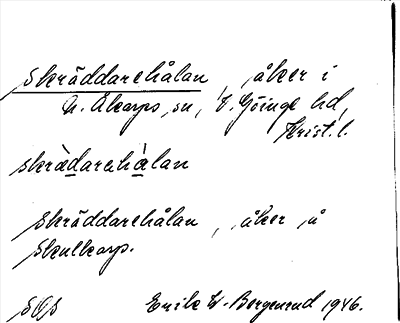 Skräddarehålan, åker i
N. Åkarps sn, V. Göinge hd,
Krist. l.
skrädarehålan
Skräddarehålan, åker å
Skulkarp.
SOS Emile W. Bergmrud 1946.